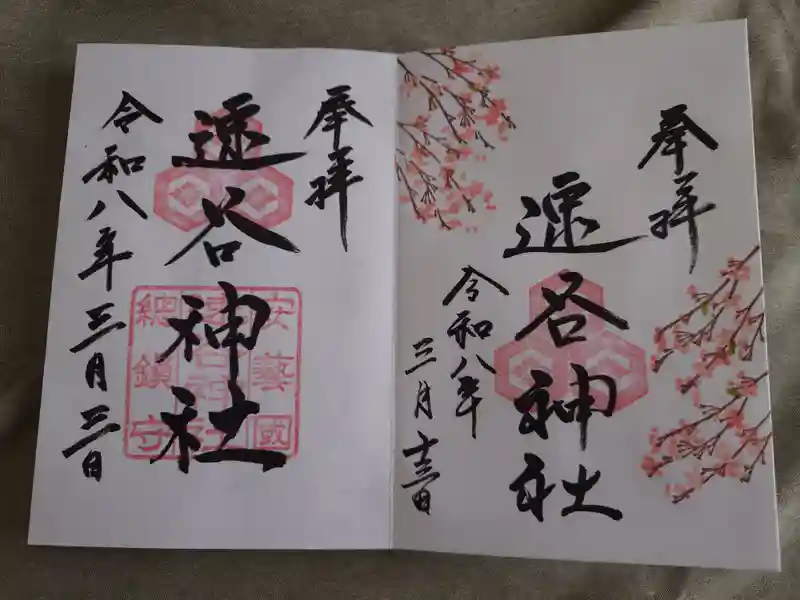 奉拝
速谷神社
令和八年
三月十三日
奉拝
速谷神社
安藝國
總鎮守
令和八年三月三日